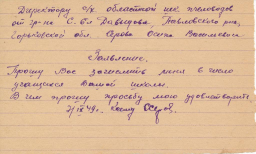 Директору с/х областной шк. пчеловодов
от гр-на С. Давыдова Павловского р-на,
Горьковской обл. Серова Осипа Васильевич
Заявление.
Прошу Вас зачислить меня в число
учащихся Вашей школы.
В чем прошу просьбу мою удовлетворить